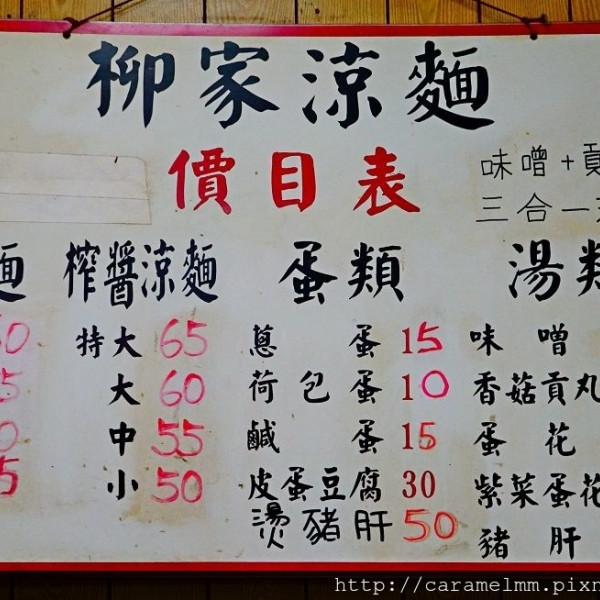 柳家涼麵
價目表
味噌+貢
三合一
麵 榨醬涼麵 蛋類 湯類
0 特大 65 蔥蛋 15 味噌
5 大 60 荷包蛋 10 香菇貢丸
0 中 55 鹹蛋 15 蛋花
5 小 50 皮蛋豆腐 30 紫菜蛋花
燙豬肝 50 豬肝
http://caramelmm.pixn